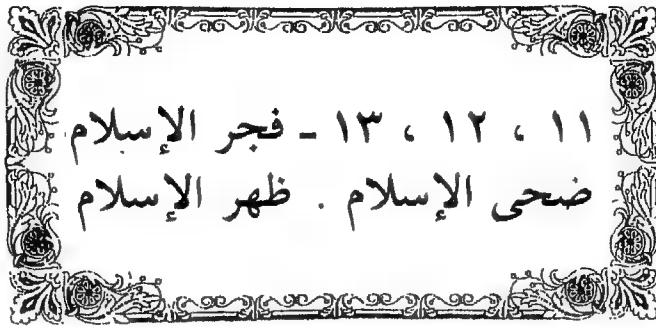 ١١ ، ١٢ ، ١٣ - فجر الإسلام
ضحى الإسلام . ظهر الإسلام